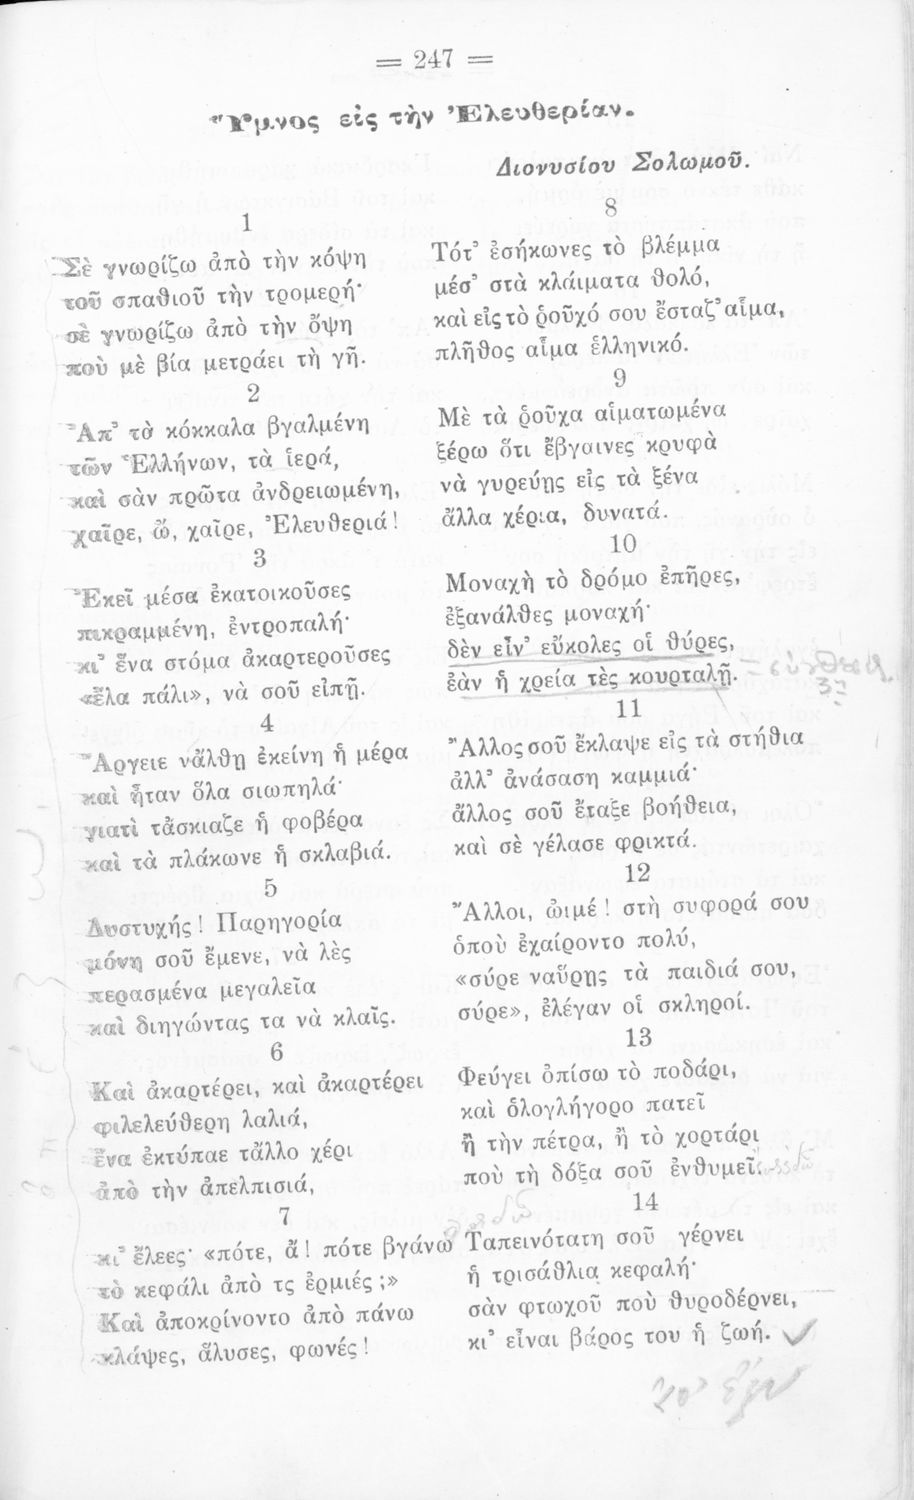 = 247 =
Ὕμνος εἰς τὴν Ἐλευθερίαν.
Διονυσίου Σολωμοῦ.
1
Σὲ γνωρίζω ἀπὸ τὴν κόψη
τοῦ σπαθιοῦ τὴν τρομερή·
σὲ γνωρίζω ἀπὸ τὴν ὄψη
ποὺ μὲ βία μετράει τὴ γῆ.
2
Ἀπ’ τὰ κόκκαλα βγαλμένη
τῶν Ἑλλήνων, τὰ ἱερά,
καὶ σὰν πρῶτα ἀνδρειωμένη,
χαῖρε, ὤ, χαῖρε, Ἐλευθεριά!
3
Ἐκεῖ μέσα ἐκατοικοῦσες
πικραμμένη, ἐντροπαλή·
κι’ ἕνα στόμα ἀκαρτεροῦσες
«ἔλα πάλι», νὰ σοῦ εἰπῇ.
4
Ἄργειε νἄλθῃ ἐκείνη ἡ μέρα
καὶ ἦταν ὅλα σιωπηλά·
γιατὶ τἄσκιαζε ἡ φοβέρα
καὶ τὰ πλάκωνε ἡ σκλαβιά.
5
Δυστυχής! Παρηγορία
μόνη σοῦ ἔμενε, νὰ λὲς
περασμένα μεγαλεῖα
καὶ διηγώντας τα νὰ κλαῖς.
6
Καὶ ἀκαρτέρει, καὶ ἀκαρτέρει
φιλελεύθερη λαλιά,
ἕνα ἐκτύπαε τἄλλο χέρι
ἀπὸ τὴν ἀπελπισιά,
7
κι’ ἔλεες· «πότε, ἄ! πότε βγάνω
τὸ κεφάλι ἀπὸ τς ἐρμιές;»
Καὶ ἀποκρίνοντο ἀπὸ πάνω
κλάψες, ἅλυσες, φωνές!
8
Τότ’ ἐσήκωνες τὸ βλέμμα
μέσ’ στὰ κλάιματα θολό,
καὶ εἰς τὸ ῥοῦχό σου ἔσταζ’ αἷμα,
πλῆθος αἷμα ἑλληνικό.
9
Μὲ τὰ ῥοῦχα αἱματωμένα
ξέρω ὅτι ἔβγαινες κρυφὰ
νὰ γυρεύῃς εἰς τὰ ξένα
ἄλλα χέρια, δυνατά.
10
Μοναχὴ τὸ δρόμο ἐπῆρες,
ἐξανάλθες μοναχή·
δὲν εἶν’ εὔκολες οἱ θύρες,
ἐὰν ἡ χρεία τὲς κουρταλῇ.
11
Ἄλλος σοῦ ἔκλαψε εἰς τὰ στήθια
ἀλλ’ ἀνάσαση καμμιά·
ἄλλος σοῦ ἔταξε βοήθεια,
καὶ σὲ γέλασε φρικτά.
12
Ἄλλοι, ὠιμέ! στὴ συφορά σου
ὁποὺ ἐχαίροντο πολύ,
«σύρε ναὕρῃς τὰ παιδιά σου,
σύρε», ἐλέγαν οἱ σκληροί.
13
Φεύγει ὀπίσω τὸ ποδάρι,
καὶ ὁλογλήγορο πατεῖ
ἢ τὴν πέτρα, ἢ τὸ χορτάρι
ποὺ τὴ δόξα σοῦ ἐνθυμεῖ.
14
Ταπεινότατη σοῦ γέρνει
ἡ τρισάθλια κεφαλή·
σὰν φτωχοῦ ποὺ θυροδέρνει,
κι’ εἶναι βάρος του ἡ ζωή.